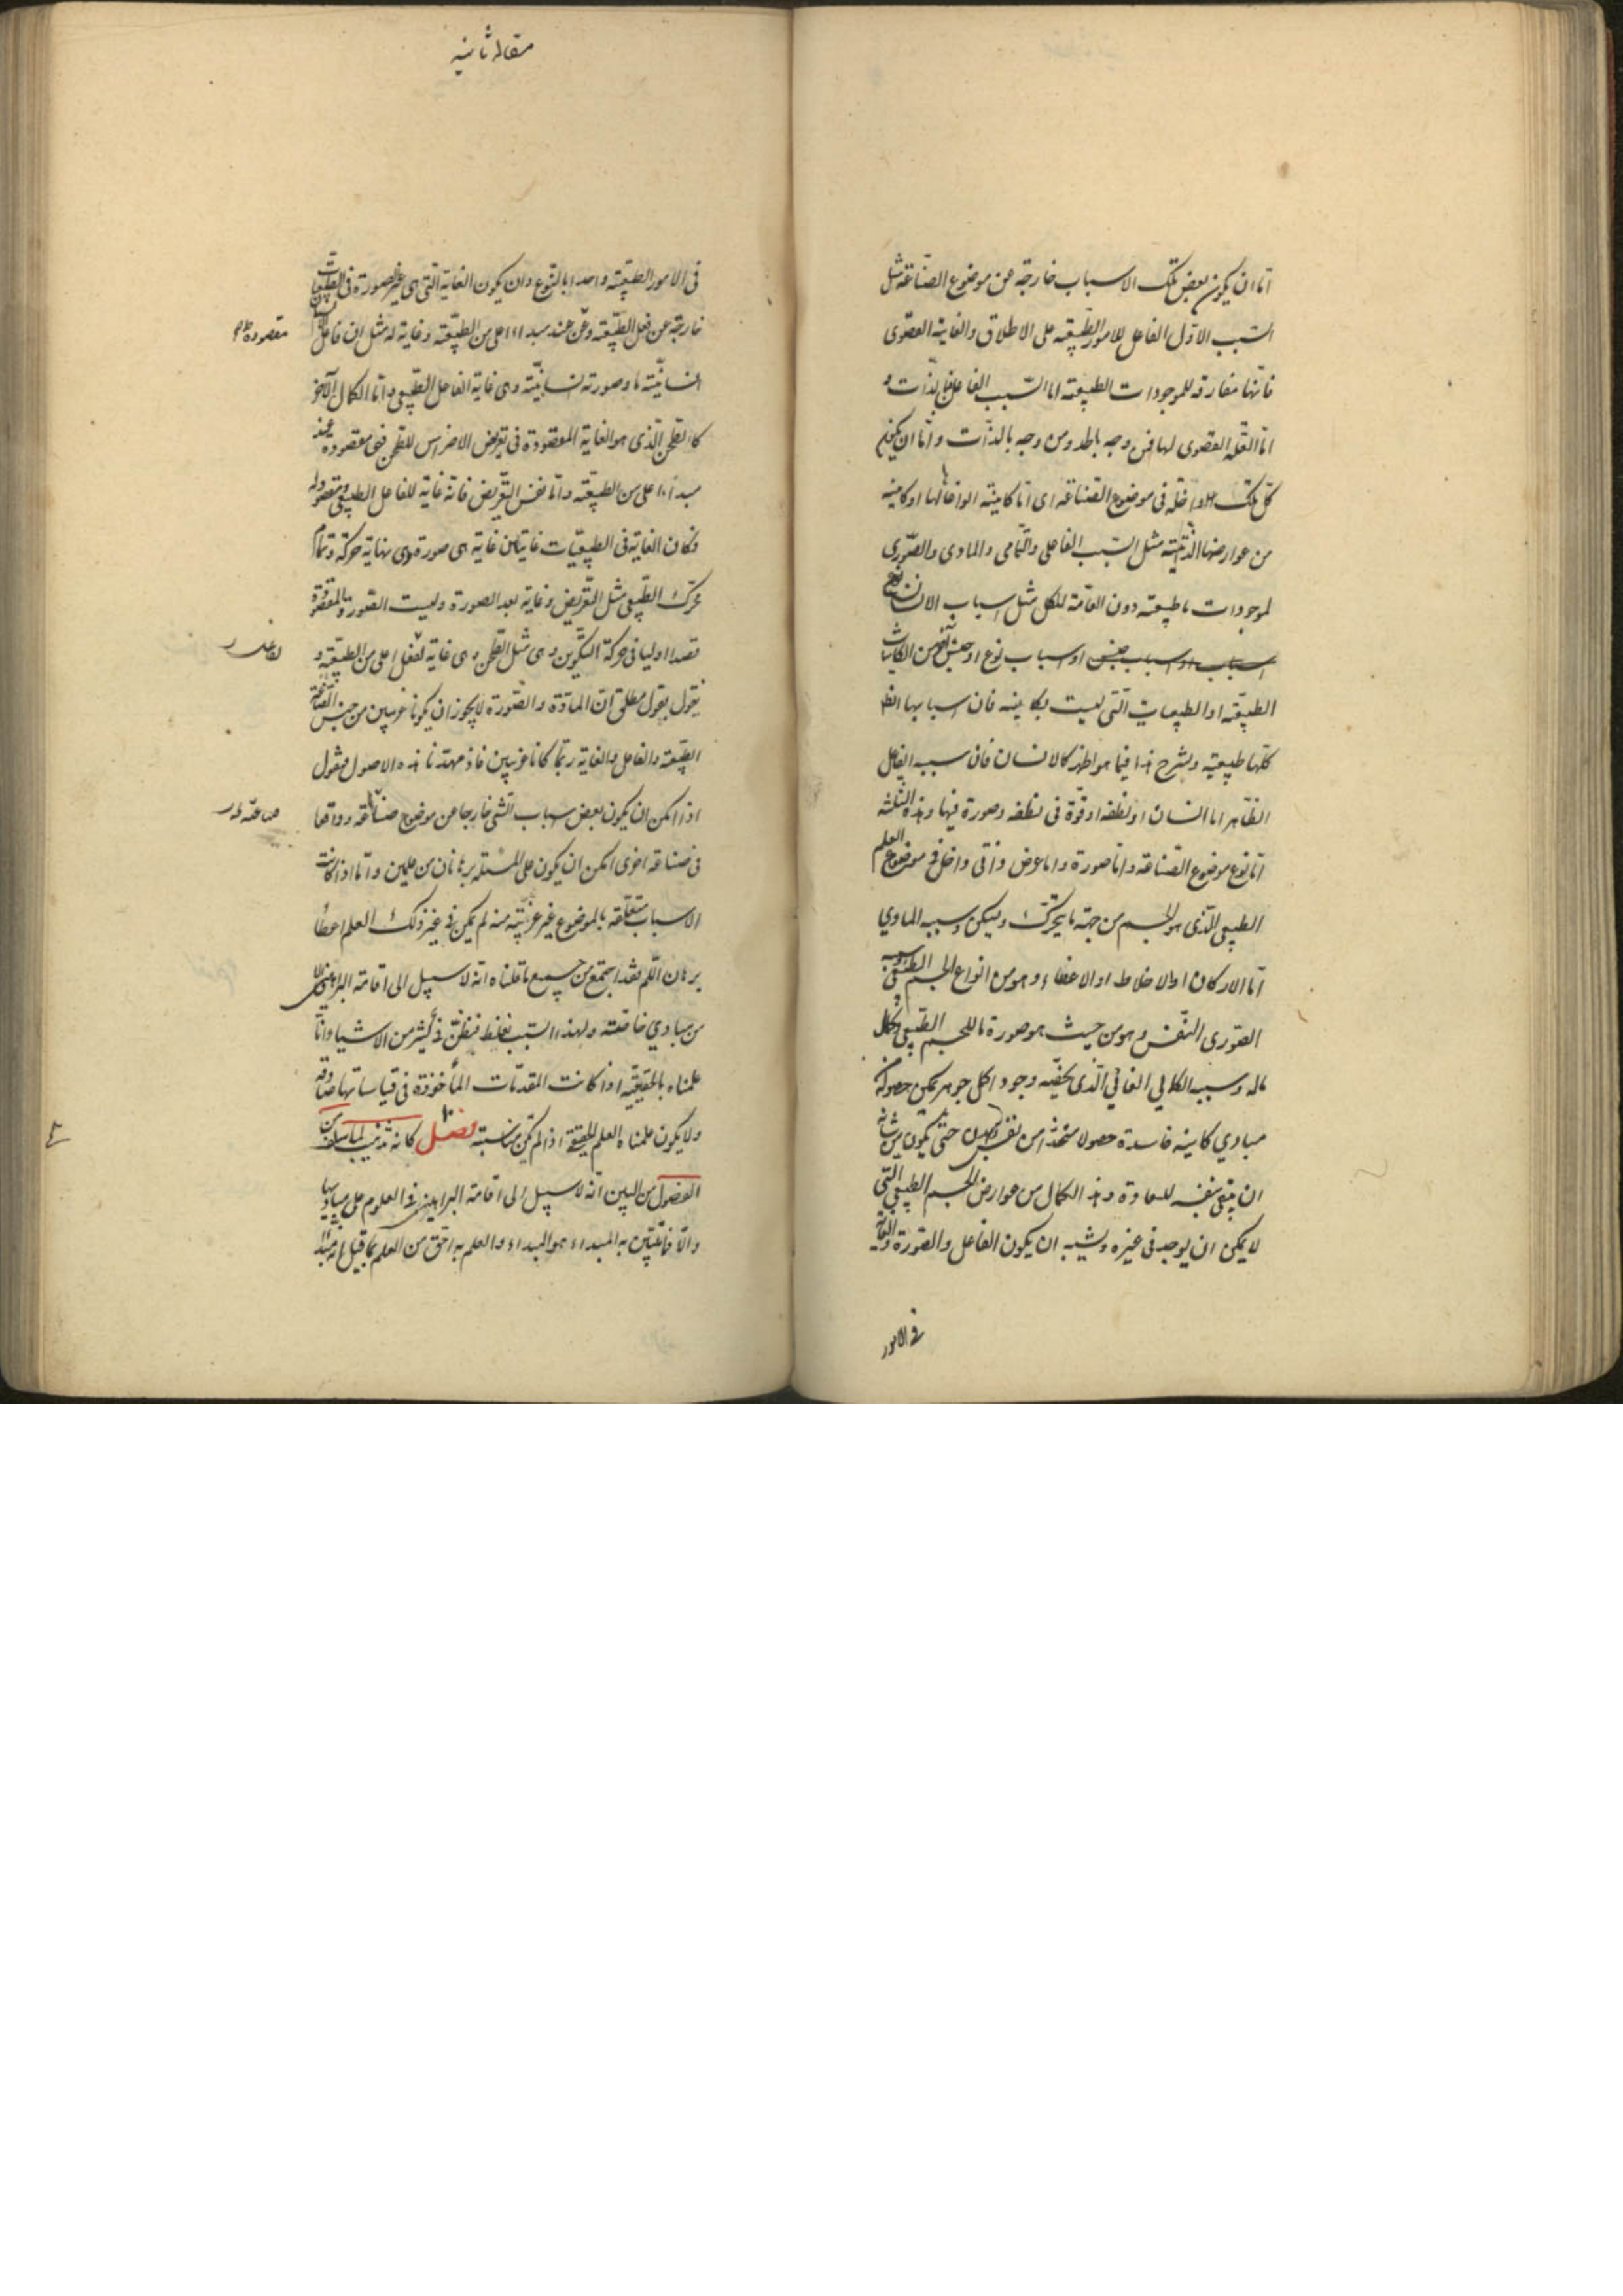 اما ان يكون بعض تلك الاسباب خارجة عن موضوع الصناعة مثل
السبب الاول الفاعل للامور الطبيعية على الاطلاق والغاية القصوى
فانها مفارقة للموجودات الطبيعية اما السبب الفاعل فبالذات و
اما العلة القصوى لها فمن وجه بالحد ومن وجه بالذات واما ان يكون
كل تلك داخلة فى موضوع الصناعة اى اما كاينة انواعا لها او كاينة
من عوارضها الذاتية مثل السبب الفاعلى والتمامى والمادى والصورى
لموجودات ما طبيعية دون العامة للكل مثل اسباب الانسان
اسباب او اسباب جنس او اسباب نوع او جنس آخر من الكاينات
الطبيعية او الطبيعيات التى ليست بكاينة فان اسبابها ايضا
كلها طبيعية ولنشرح هذا فيما هو اظهر كالانسان فان سببه الفاعل
الظاهر اما انسان او نطفة او قوة فى نطفة وصورة فيها وهذه الثلثة
اما نوع موضوع الصناعة واما صورة واما عرض ذاتى داخل فى موضوع العلم
الطبيعى الذى هو الجسم من جهة ما يتحرك وليكن سببه المادي
اما الاركان او الاخلاط او الاعضاء وهو من انواع الجسم الطبيعى وسببه
الصورى النفس وهو من حيث هو صورة ما للجسم الطبيعى وكمال
ما له وسببه الكمالي الغائي الذى يخصه وجود اكمل جوهر يمكن حصوله
مبادي كاينة فاسدة حصولا متحدا من نفس وبدن حتى يكون من شانه
ان يبقى بنفسه للسعادة وهذا الكمال من عوارض الجسم الطبيعى التى
لا يمكن ان يوجد فى غيره ويشبه ان يكون الفاعل والصورة والغاية
فى الامور
مقاله ثانيه
فى الامور الطبيعية واحدا بالنوع وان يكون الغاية التى هى غير الصورة فى الطبيعيات
خارجة عن فعل الطبيعة وعن عند مبداء اعلى من الطبيعة وغاية له مثل ان فاعل الانسان
مقصودة
انسانية ما وصورته انسانية وهى غاية الفاعل الطبيعى واما الكمال الآخر
كالطحن الذى هو الغاية المقصودة فى تعريض الاضراس للطحن فهى مقصودة عند
مبداء اعلى من الطبيعة واما نفس التعريض فانه غاية للفاعل الطبيعى ومقصود له
فكان الغاية فى الطبيعيات غايتان غاية هى صورة وهى نهاية حركة وتمام
محرك الطبيعى مثل التعريض وغاية بعد الصورة وليست الصورة المقصودة
قصدا اوليا فى حركة التكوين وهى مثل الطحن وهى غاية لفعل اعلى من الطبيعة و
لفاعل
نقول بقول مطلق ان المادة والصورة لا يجوز ان يكونا غريبين من جنس الصناعة
الطبيعية والفاعل والغاية ربما كانا غريبين فاذ مهدنا هذه الاصول فنقول
اذا امكن ان يكون بعض اسباب الشى خارجا من موضوع صناعة وواقعا
صناعته
فى صناعة اخرى امكن ان يكون على المسئلة برهانان من علمين واما اذا كانت
الاسباب متعلقة بالموضوع غير غريبة منه لم يمكن فى غير ذلك العلم اعطاء
برهان اللم فقد اجتمع من جميع ما قلناه انه لا سبيل الى اقامة البراهين الا
من مبادي خاصة ولهذا السبب نغلط فنظن فى كثير من الاشياء انا
علمناه بالحقيقة اذا كانت المقدمات المأخوذة فى قياساتها صادقة
ولا يكون علمناه العلم الحقيقة اذا لم تكن مناسبته فصل ١٠ كانه تذنيب لما سلف من
الفصول من البين انه لا سبيل الى اقامة البراهين فى العلوم على مباديها
والا فالمتبين به المبداء هو المبداء والعلم به احق من العلم بما قيل انه مبداء